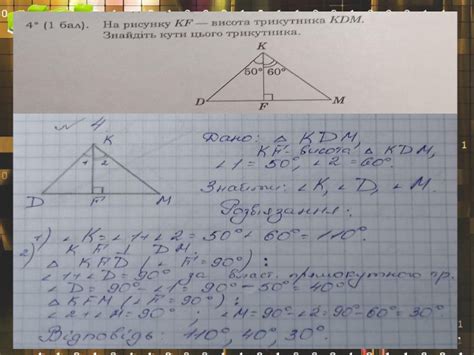 4° (1 бал). На рисунку KF — висота трикутника KDM.
Знайдіть кути цього трикутника.
K
50° 60°
D F M
№ 4
K
1 2
D F M
Дано: △ KDM,
KF - висота △ KDM,
∠1 = 50°, ∠2 = 60°.
Знайти: ∠K, ∠D, ∠M.
Розв'язання:
1) ∠K = ∠1 + ∠2 = 50° + 60° = 110°.
2) KF ⊥ DM.
△ KFD (∠F = 90°):
∠1 + ∠D = 90° за власт. прямокутного тр.
∠D = 90° - ∠1 = 90° - 50° = 40°
△ KFM (∠F = 90°):
∠2 + ∠M = 90°; ∠M = 90° - ∠2 = 90 - 60° = 30°
Відповідь: 110°, 40°, 30°.